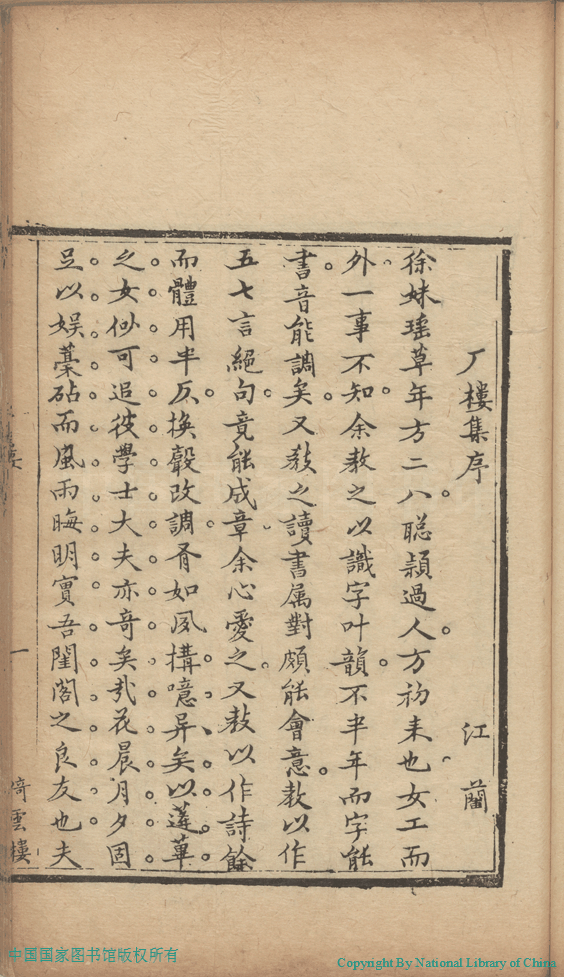 厂樓集序
江蘭
徐妹瑶草年方二八聪頴過人方初来也女工而
外一事不知余教之以識字叶韻不半年而字能
書音能調矣又教之讀書属對頗能會意教以作
五七言絕句竟能成章余心愛之又教以作詩餘
而體用半仄換韾改調胥如夙搆噫异矣以蓬蓽
之女似可追彼學士大夫亦奇矣㢤花晨月夕固
足以娱藁砧而風雨晦明實吾閨閣之良友也夫
一
倚雲樓
中国国家图书馆版权所有
Copyright By National Library of China